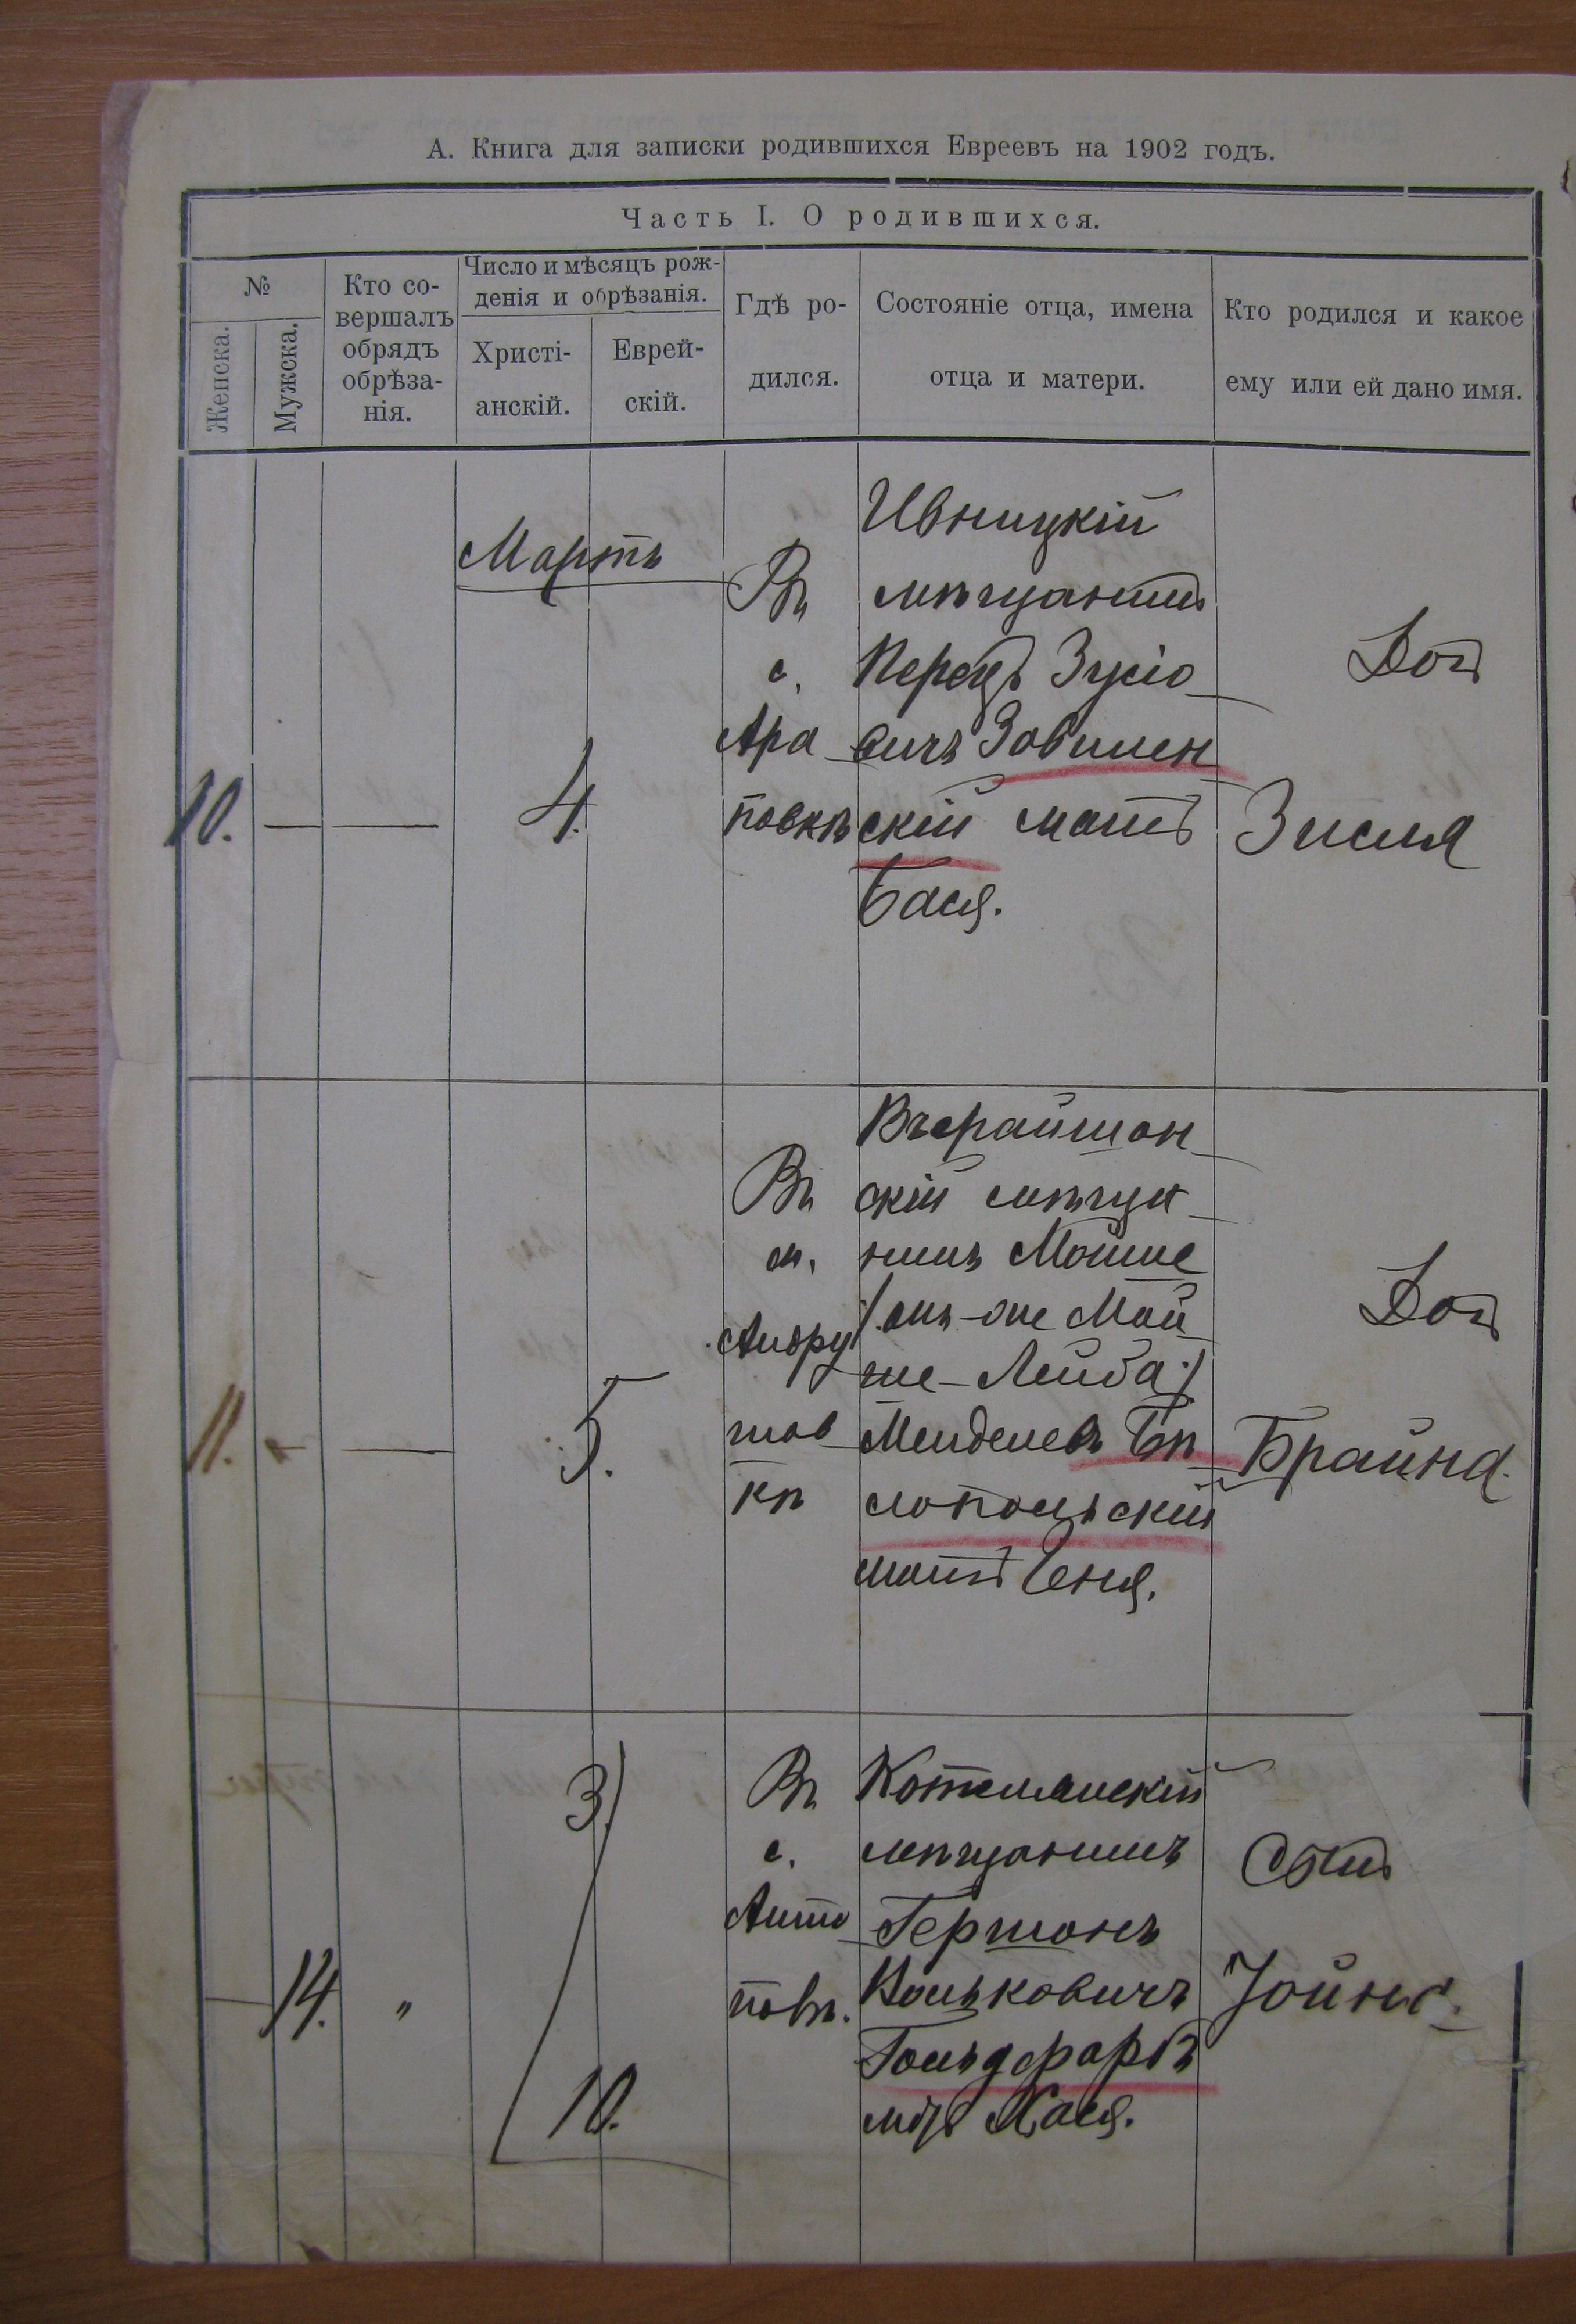 А. Книга для записки родившихся Евреевъ на 1902 годъ.
Часть I. О родившихся.
№
Женска.
Мужска.
Кто со-
вершалъ
обрядъ
обрѣза-
нія.
Число и мѣсяцъ рож-
денія и обрѣзанія.
Христі-
анскій.
Еврей-
скій.
Гдѣ ро-
дился.
Состояніе отца, имена
отца и матери.
Кто родился и какое
ему или ей дано имя.
10.
—
—
Мартъ
4.
Въ
с.
Ара
повкѣ
Ивницкій
мѣщанинъ
Перецъ Зусіо
вичъ
скій мать
Бася.
Доч
Зисля
11.
—
5.
Въ
м.
Андру
шов
кѣ
Вчерайшан
скій мѣща
нинъ Мойше
/онъ-же Мой
ше-Лейба/
Менделевъ Бѣ
лопольскій
мать Геня.
Доч
Брайна.
14.
"
3
10.
Въ
с.
Анто
повѣ.
мѣщанинъ
Гершонъ
Вольковичъ
Гольдфарбъ
Хася.
Сынъ
Іойна.